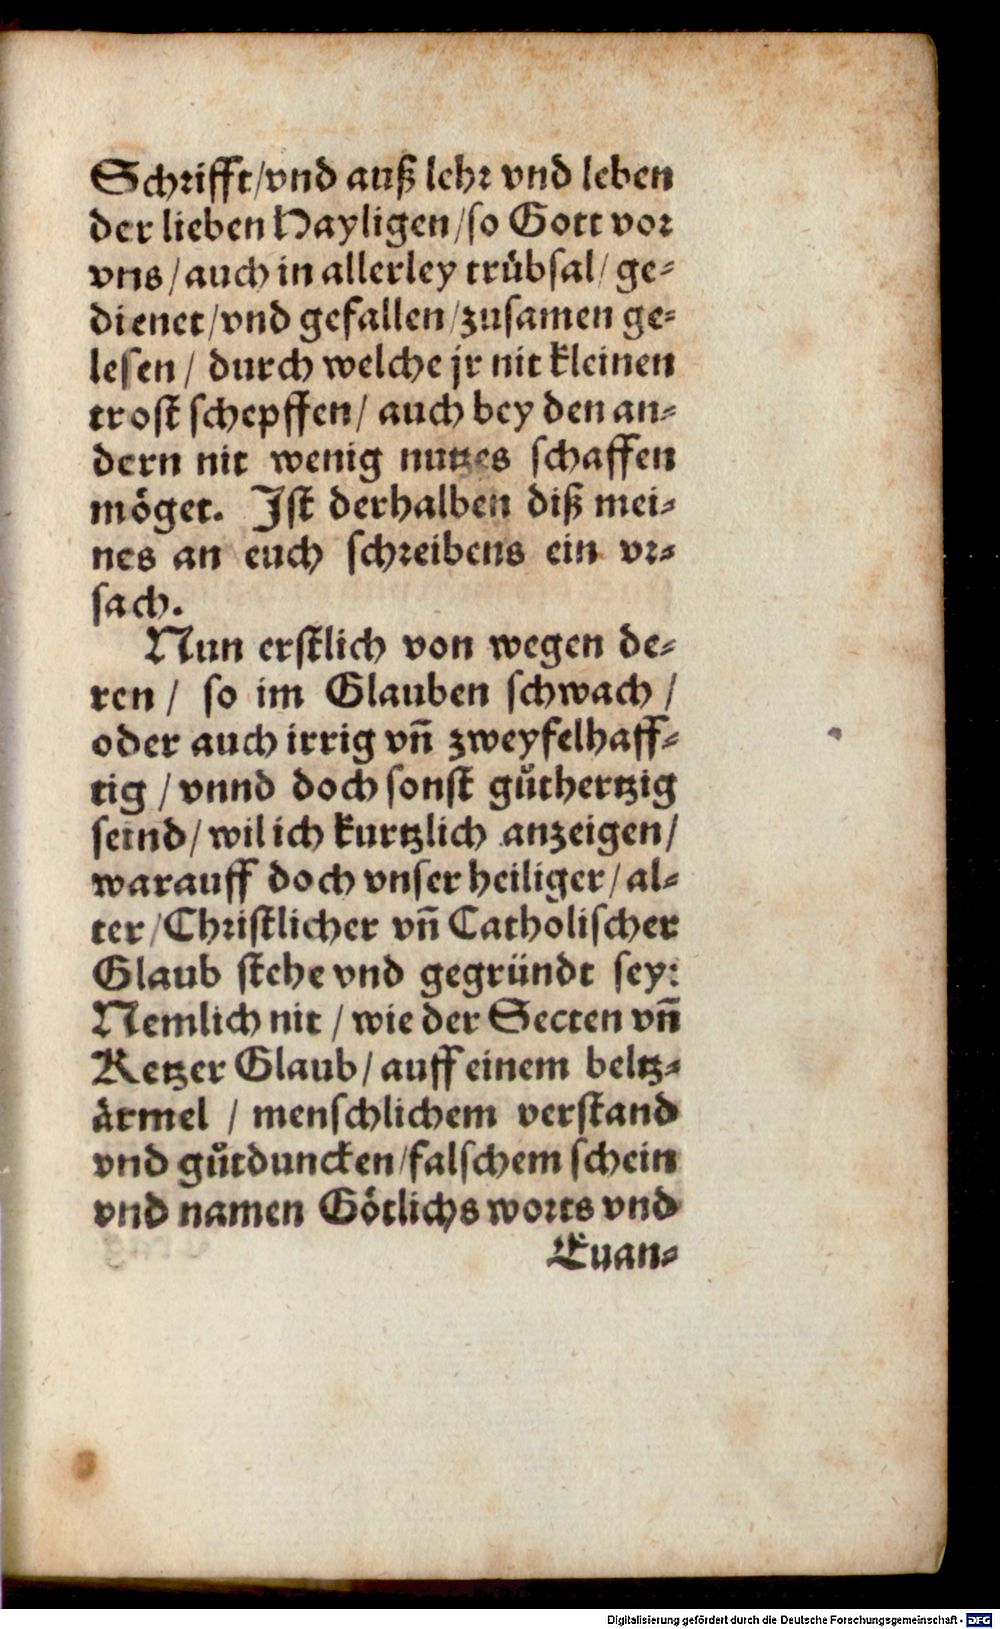 Schrifft/vnd auß lehr vnd leben
der lieben Hayligen/so Gott vor
vns/auch in allerley trübsal/ge⸗
dienet/vnd gefallen/zusamen ge⸗
lesen/ durch welche jr nit kleinen
trost schepffen/ auch bey den an⸗
dern nit wenig nutzes schaffen
möget. Ist derhalben diß mei⸗
nes an euch schreibens ein vr⸗
sach.
Nun erstlich von wegen de⸗
ren/ so im Glauben schwach/
oder auch irrig vñ zweyfelhaff⸗
tig/vnnd doch sonst gůthertzig
seind/wil ich kurtzlich anzeigen/
warauff doch vnser heiliger/al⸗
ter/Christlicher vñ Catholischer
Glaub stehe vnd gegründt sey:
Nemlich nit/wie der Secten vñ
Ketzer Glaub/auff einem beltz⸗
ärmel/menschlichem verstand
vnd gůtduncken/falschem schein
vnd namen Götlichs worts vnd
Euan⸗
Digitalisierung gefördert durch die Deutsche Forschungsgemeinschaft - DFG